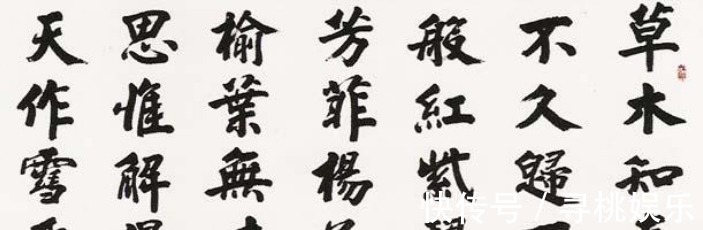 草木知
不久歸
般紅紫
芳菲楊
榆葉無
思惟解
天作雪
快传号 / 寻桃娱乐